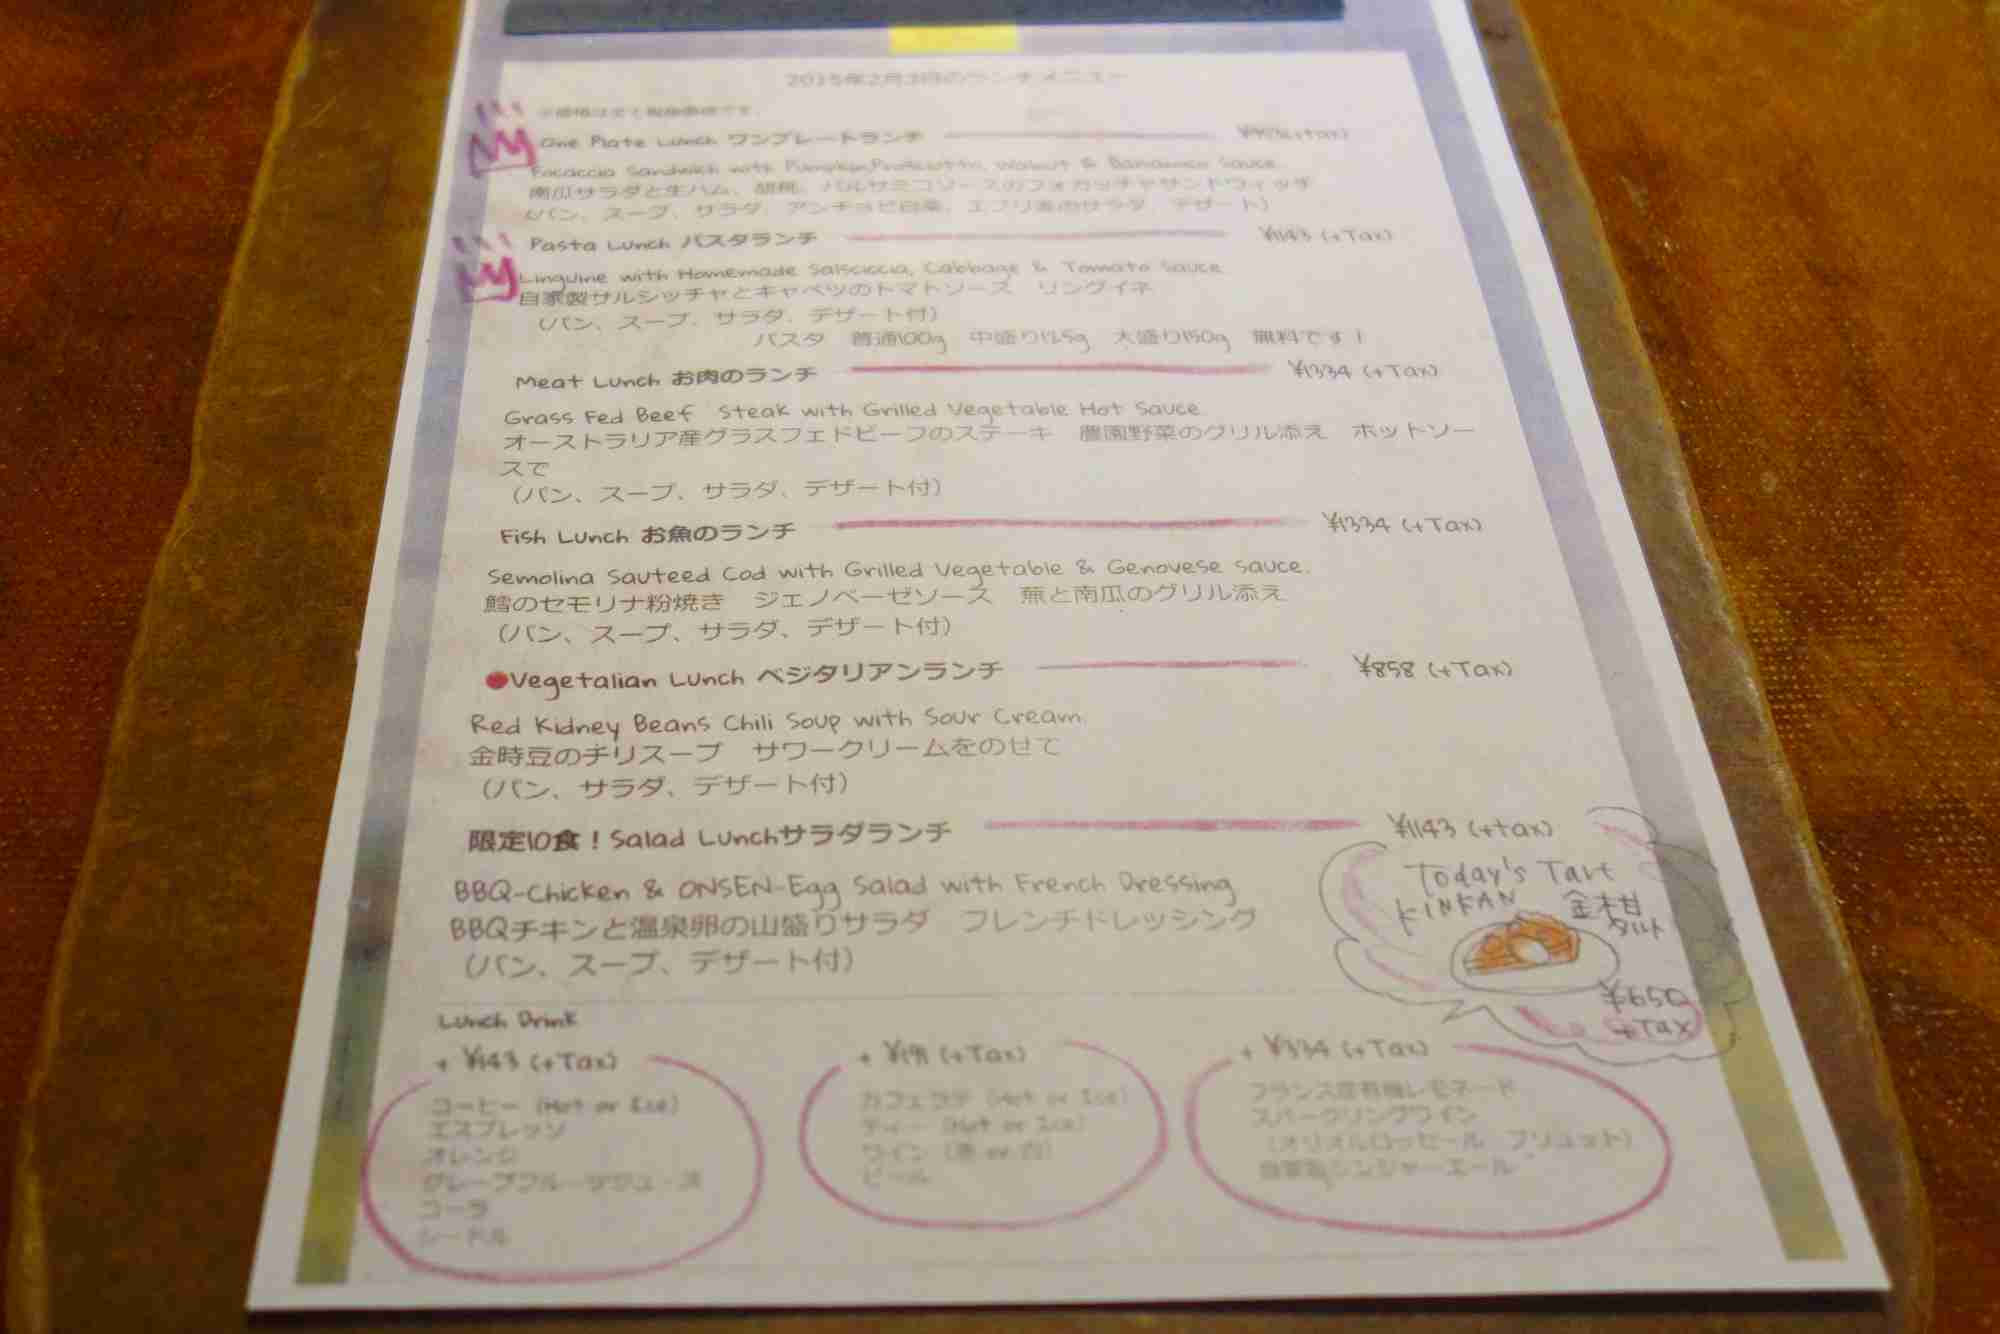 2015年2月3日のランチメニュー
One Plate Lunch ワンプレートランチ
Focaccia Sandwich with Pumpkin, Prosciutto, Walnut & Balsamico Sauce
南瓜サラダと生ハム、胡桃、バルサミコソースのフォカッチャサンドウィッチ
(パン、スープ、サラダ、アンチョビ白菜、デザート)
Pasta Lunch パスタランチ ¥1143 (+Tax)
Linguine with Homemade Salsciccia, Cabbage & Tomato Sauce
自家製サルシッチャとキャベツのトマトソース リングイネ
(パン、スープ、サラダ、デザート付)
パスタ 普通100g 中盛り125g 大盛り150g 無料です!
Meat Lunch お肉のランチ ¥1334 (+Tax)
Grass Fed Beef Steak with Grilled Vegetable Hot Sauce
オーストラリア産グラスフェドビーフのステーキ 農園野菜のグリル添え ホットソー
スで
(パン、スープ、サラダ、デザート付)
Fish Lunch お魚のランチ ¥1334 (+Tax)
Semolina Sauteed Cod with Grilled Vegetable & Genovese sauce.
鱈のセモリナ粉焼き ジェノベーゼソース 蕪と南瓜のグリル添え
(パン、スープ、サラダ、デザート付)
●Vegetalian Lunch ベジタリアンランチ ¥858 (+Tax)
Red Kidney Beans Chili Soup with Sour Cream
金時豆のチリスープ サワークリームをのせて
(パン、サラダ、デザート付)
限定10食!Salad Lunchサラダランチ ¥1143 (+tax)
BBQ-Chicken & ONSEN-Egg Salad with French Dressing
BBQチキンと温泉卵の山盛りサラダ フレンチドレッシング
(パン、スープ、デザート付)
Today's Tart
KINKAN 金柑
タルト
¥650
+Tax
Lunch Drink
+ ¥143 (+Tax)
コーヒー (Hot or Ice)
エスプレッソ
オレンジ
グレープフルーツジュース
コーラ
シードル
+ ¥191 (+Tax)
カフェラテ (Hot or Ice)
ティー (Hot or Ice)
ワイン (赤 or 白)
ビール
+ ¥334 (+Tax)
フランス産有機レモネード
スパークリングワイン
(オリオルロッセール ブリュット)
自家製ジンジャーエール